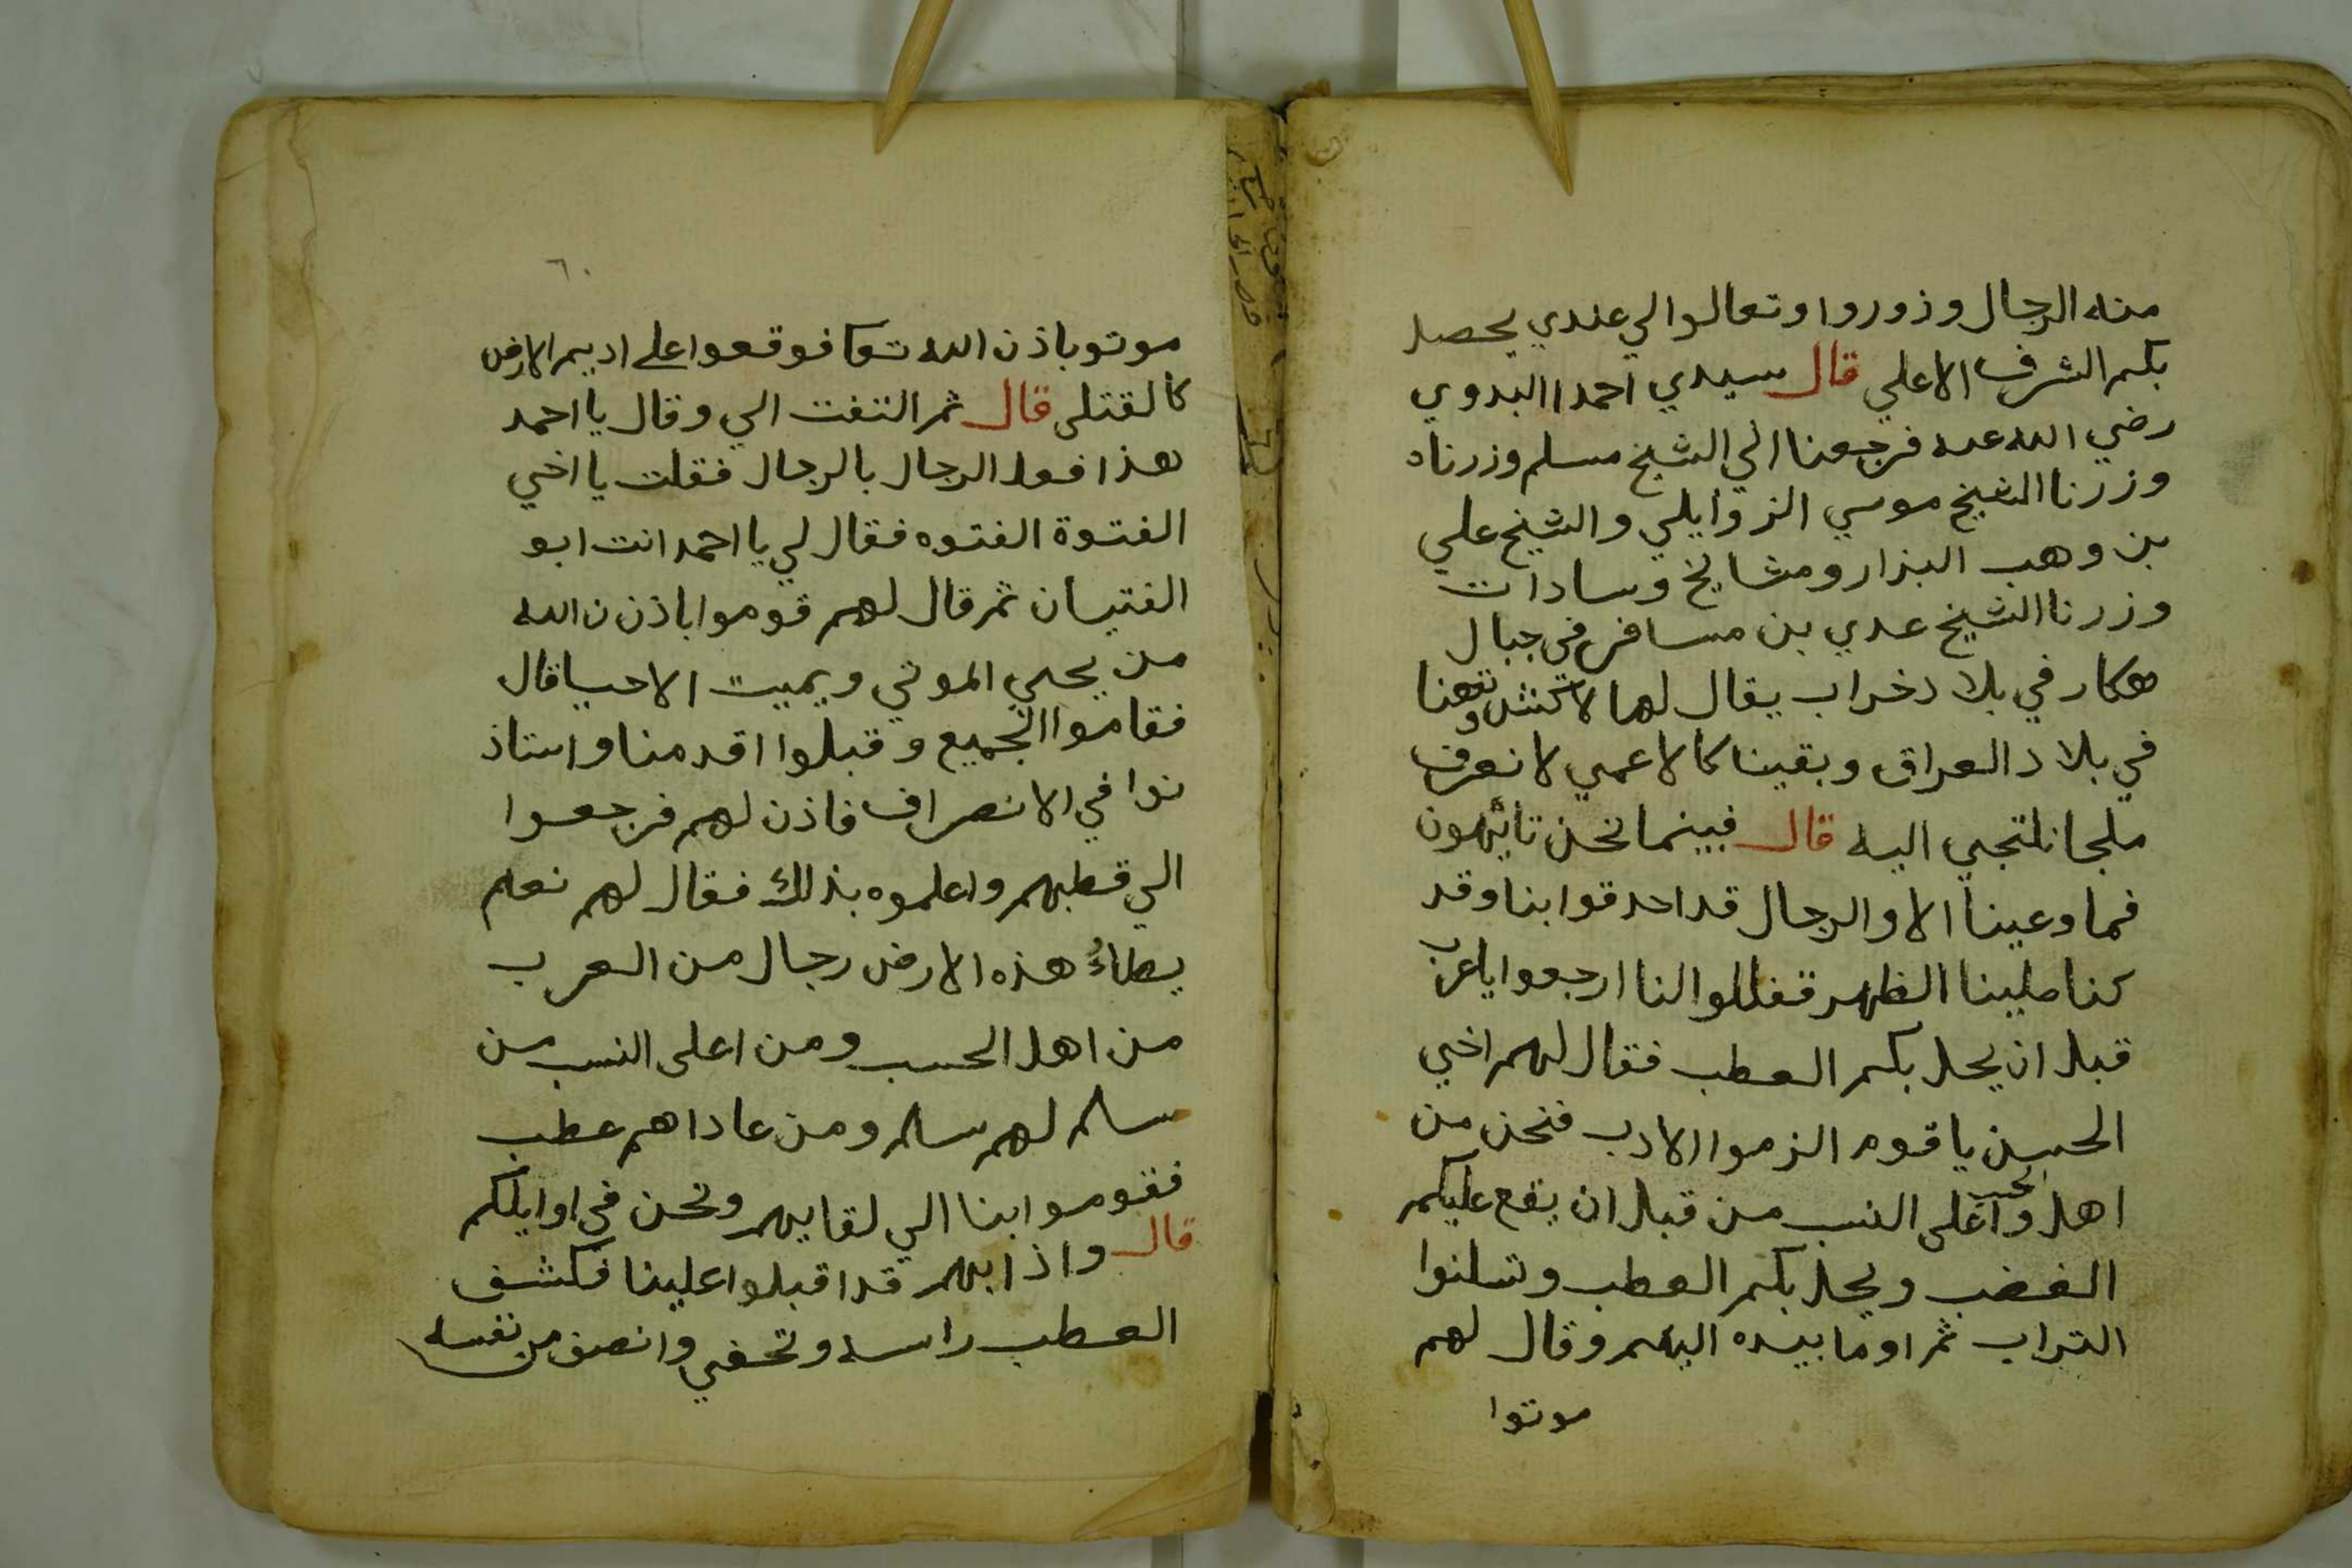 منه الرجال وزوروا وتعالوا الي عندي يحصل
بكم الشرف الاعلي قال سيدي احمد البدوي
رضي الله عنه فرجعنا الي الشيخ مسلم وزرناه
وزرنا الشيخ موسي الزوايلي والشيخ علي
بن وهب البزار ومشايخ وسادات
وزرنا الشيخ عدي بن مسافر في جبال
هكار في بلاد خراب يقال لها وتهنا
في بلاد العراق وبقينا كالاعمي لا نعرف
ملجا نلتجي اليه قال فبينما نحن تائهون
فما وعينا الا والرجال قد احدقوا بنا وقد
كنا صلينا الظهر فقالوا لنا ارجعوا يا عرب
قبل ان يحل بكم العطب فقال لهم اخي
الحسين يا قوم الزموا الادب فنحن من
اهل الحسب واعلى النسب من قبل ان يقع عليكم
الغضب ويحل بكم العطب وتسلنوا
التراب ثم اوما بيده اليهم وقال لهم
موتوا
٦٠
موتو باذن الله تعا فوقعوا على اديم الارض
كالقتلى قال ثم التفت الي وقال يا احمد
هذا فعل الرجال بالرجال فقلت يا اخي
الفتوة الفتوه فقال لي يا احمد انت ابو
الفتيان ثم قال لهم قوموا باذن ن الله
من يحيي الموتي ويميت الاحيا قال
فقاموا الجميع وقبلوا اقدمنا واستاذ
نوا في الانصراف فاذن لهم فرجعوا
الي قطبهم واعلموه بذلك فقال لهم نعم
يطاءُ هذه الارض رجال من العرب
من اهل الحسب ومن اعلى النسب من
سالم لهم سلم ومن عاداهم عطب
فقوموا بنا الي لقايهم ونحن في اوايلكم
قال واذا بهم قد اقبلوا علينا فكشف
العطب راسه وتحفي وانصف من نفسه